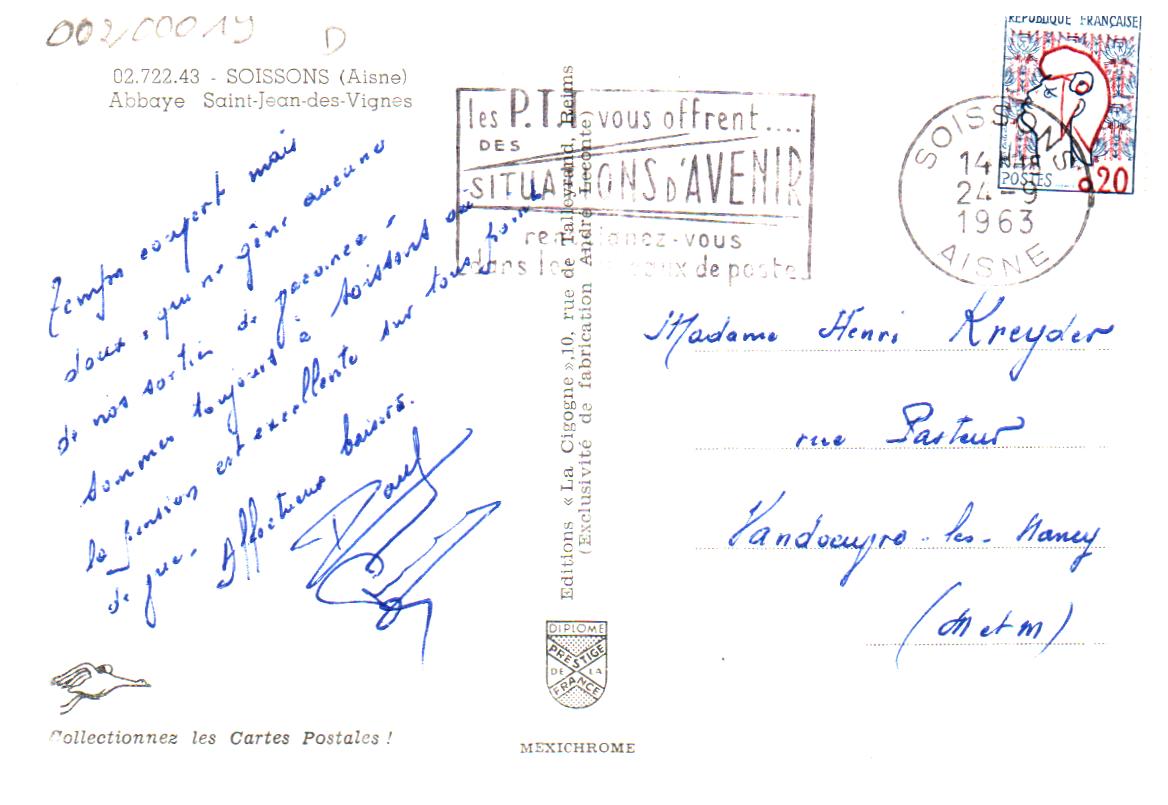 002/00019 D
02.722.43 - SOISSONS (Aisne)
Abbaye Saint-Jean-des-Vignes
Temps couvert mais
doux, qui ne gêne aucune
de nos sorties de
sommes toujours à Soissons où
la pension est excellente sur tous points
de
Affectueux baisers.
Paul
Collectionnez les Cartes Postales !
Editions « La Cigogne », 10, rue de Talleyrand, Reims
(Exclusivité de fabrication André Leconte)
DIPLOME
PRESTIGE
DE LA
FRANCE
MEXICHROME
les P.T.T. vous offrent....
DES
SITUATIONS D'AVENIR
renseignez-vous
dans les bureaux de poste
REPUBLIQUE FRANÇAISE
POSTES
0,20
SOISSONS
14 H
24-9
1963
AISNE
Madame Henri Kreyder
rue Pasteur
Vandoeuvre-les-Nancy
(M et M)